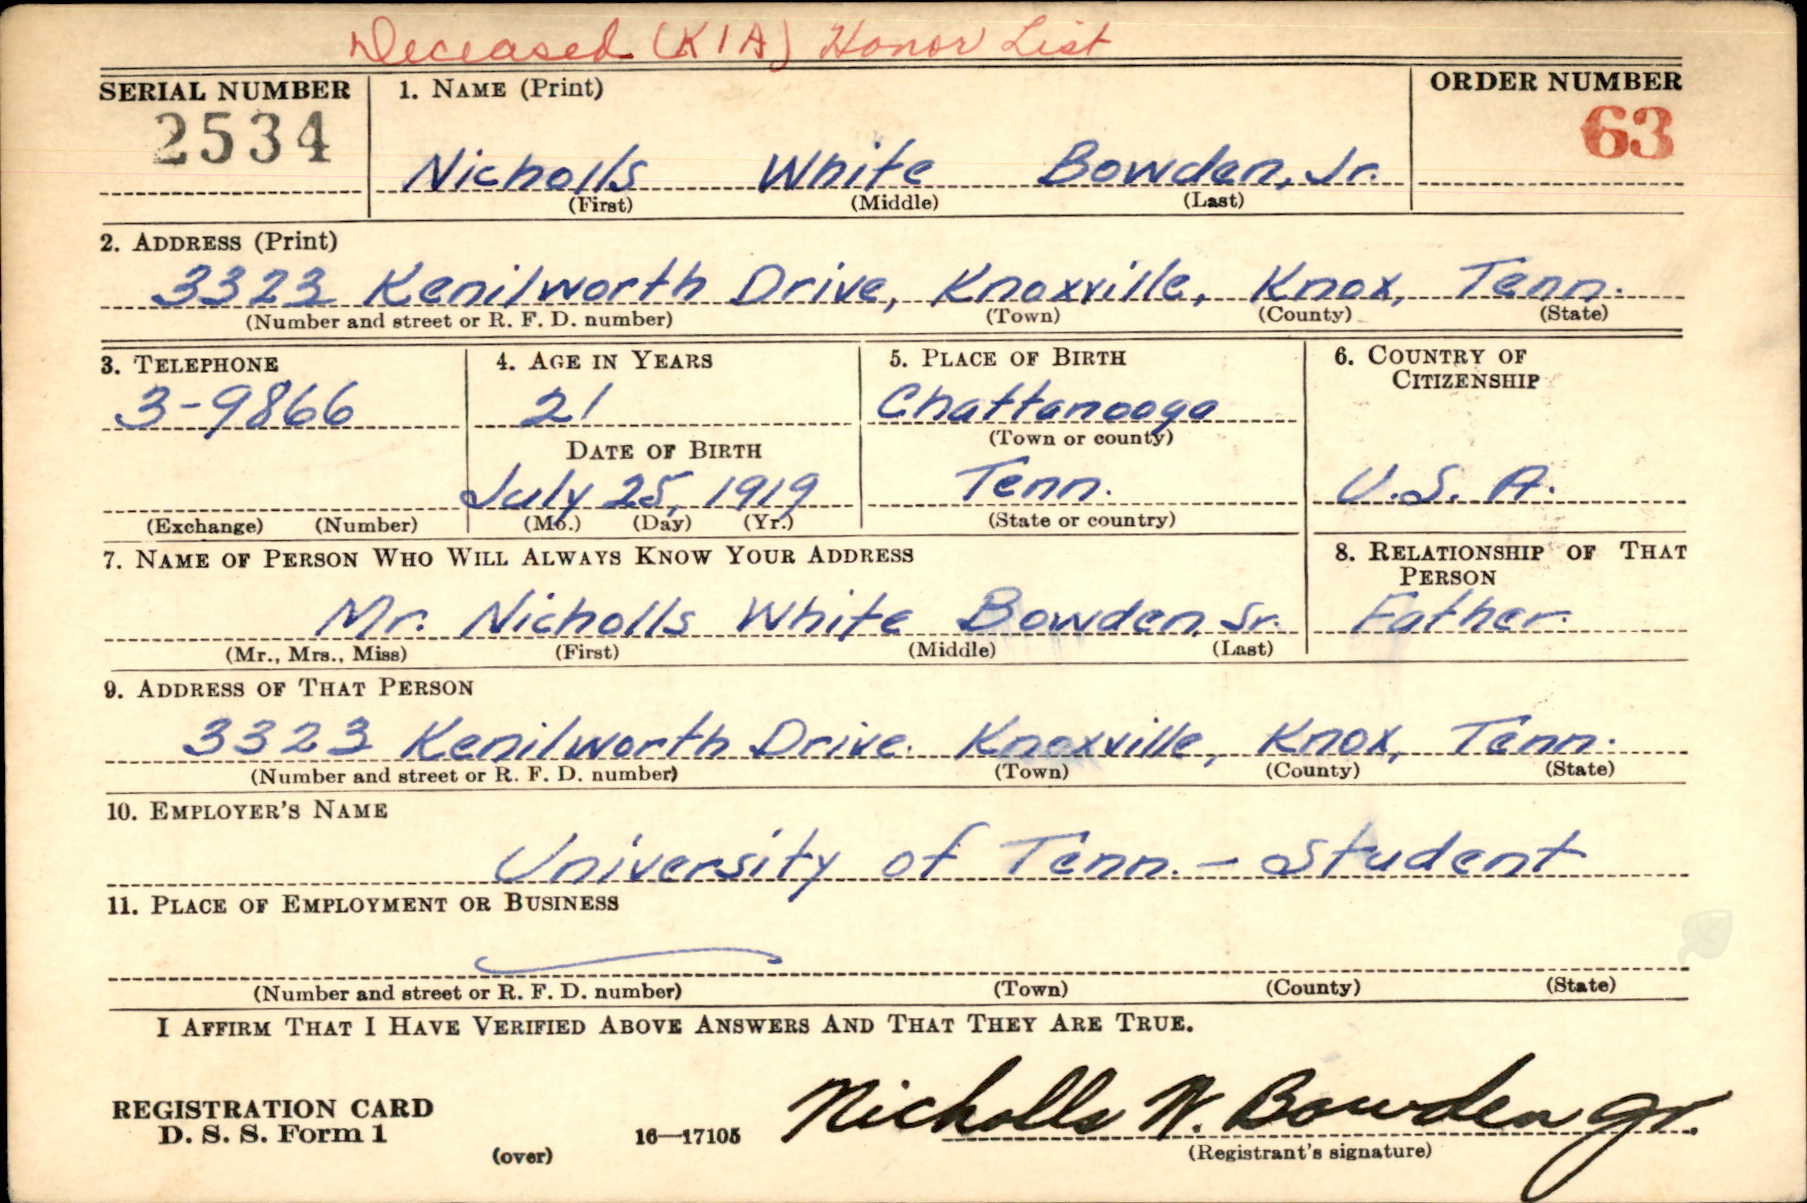 Deceased (KIA) Honor List
SERIAL NUMBER 1. NAME (Print) ORDER NUMBER
2534 63
Nicholls White Bowden, Jr.
(First) (Middle) (Last)
2. ADDRESS (Print)
3323 Kenilworth Drive, Knoxville, Knox, Tenn.
(Number and street or R. F. D. number) (Town) (County) (State)
3. TELEPHONE 4. AGE IN YEARS 5. PLACE OF BIRTH 6. COUNTRY OF
CITIZENSHIP
3-9866 21 Chattanooga
(Town or county)
DATE OF BIRTH
July 25, 1919 Tenn. U.S.A.
(Exchange) (Number) (Mo.) (Day) (Yr.) (State or country)
7. NAME OF PERSON WHO WILL ALWAYS KNOW YOUR ADDRESS 8. RELATIONSHIP OF THAT
PERSON
Mr. Nicholls White Bowden Sr. Father
(Mr., Mrs., Miss) (First) (Middle) (Last)
9. ADDRESS OF THAT PERSON
3323 Kenilworth Drive. Knoxville, Knox, Tenn.
(Number and street or R. F. D. number) (Town) (County) (State)
10. EMPLOYER'S NAME
University of Tenn. - Student
11. PLACE OF EMPLOYMENT OR BUSINESS
(Number and street or R. F. D. number) (Town) (County) (State)
I AFFIRM THAT I HAVE VERIFIED ABOVE ANSWERS AND THAT THEY ARE TRUE.
REGISTRATION CARD
D. S. S. Form 1
(over) 16—17105 Nicholls W. Bowden Jr.
(Registrant's signature)